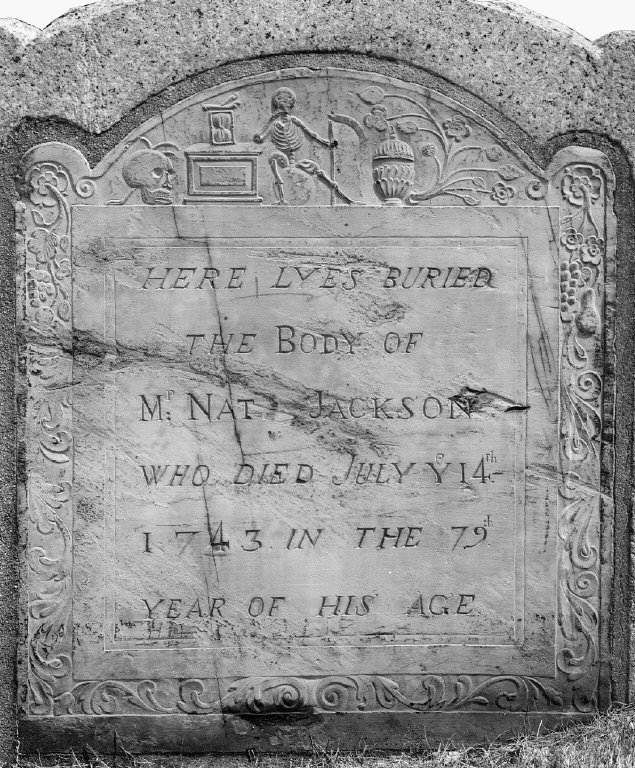 HERE LYES BURIED
THE BODY OF
Mr. NAT JACKSON
WHO DIED JULY Ye 14th
1743 IN THE 79th
YEAR OF HIS AGE